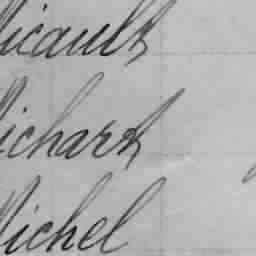 Micault
Michard
Michel